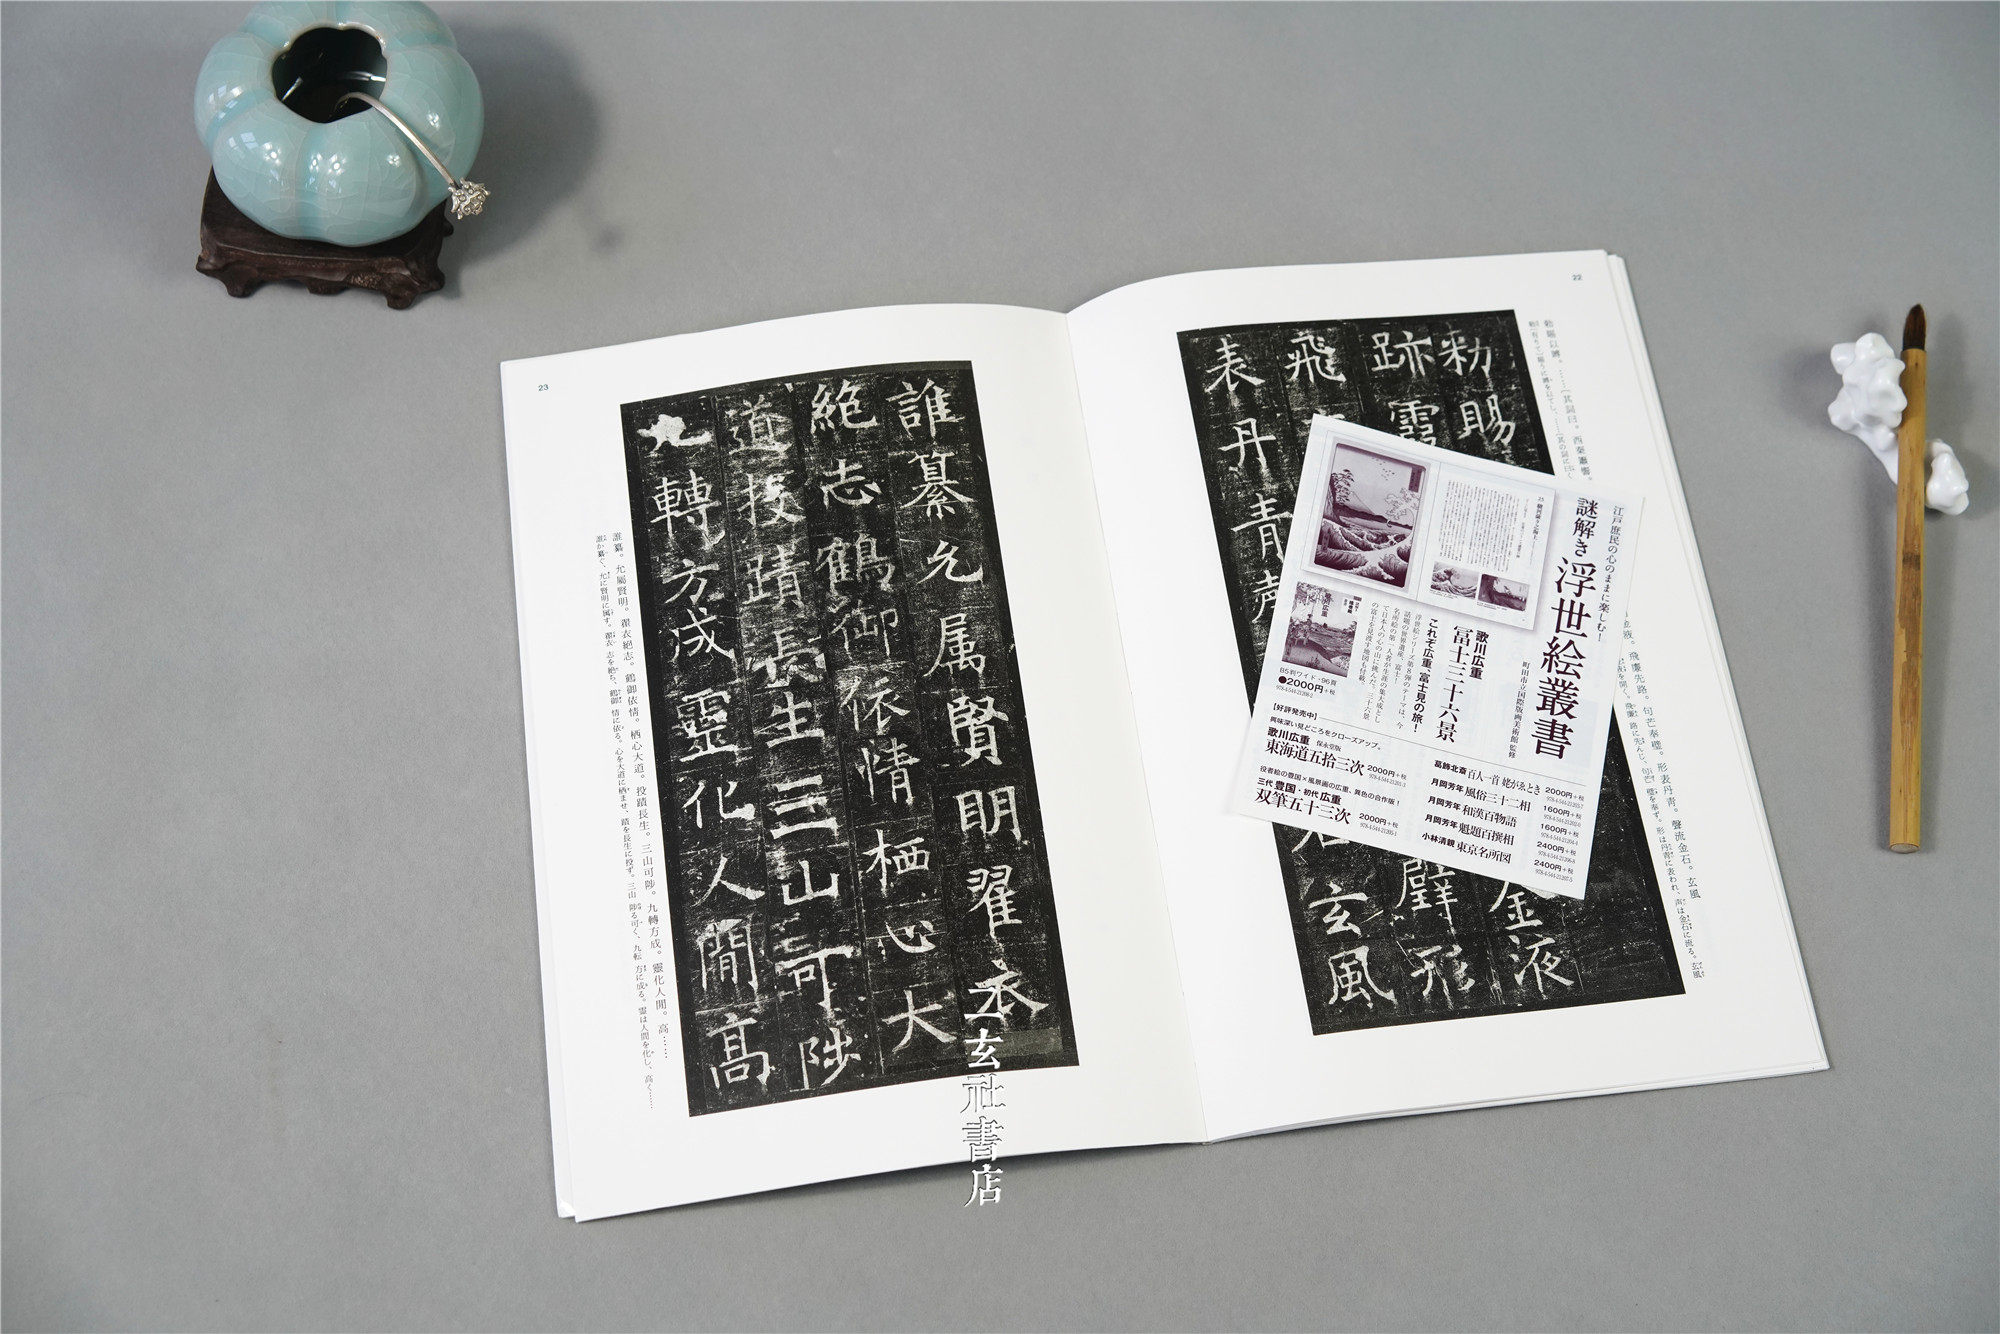 22
勅賜
跡霞
飛
表丹青
金液
璧形
玄風
23
誰纂允属賢明翟衣
絶志鶴御依情栖心大
道投蹟長生三山可陟
九轉方成靈化人間高
誰纂。允屬賢明。翟衣絕志。鶴御依情。栖心大道。投蹟長生。三山可陟。九轉方成。靈化人間。高……
江戸庶民の心のままに楽しむ!
謎解き 浮世絵叢書
町田市立国際版画美術館 監修
歌川広重
冨士三十六景
これぞ広重、富士見の旅!
B5判ワイド・96頁
●2000円+税
【好評発売中】
興味深い見どころをクローズアップ。
歌川広重 保永堂版
東海道五拾三次 2000円+税
役者絵の豊国×風景画の広重、異色の合作版!
三代豊国・初代広重
双筆五十三次 2000円+税
葛飾北斎 百人一首 姥がゑとき 2000円+税
月岡芳年 風俗三十二相 1600円+税
月岡芳年 和漢百物語 1600円+税
月岡芳年 魁題百撰相 2400円+税
小林清親 東京名所図 2400円+税
一玄社書店